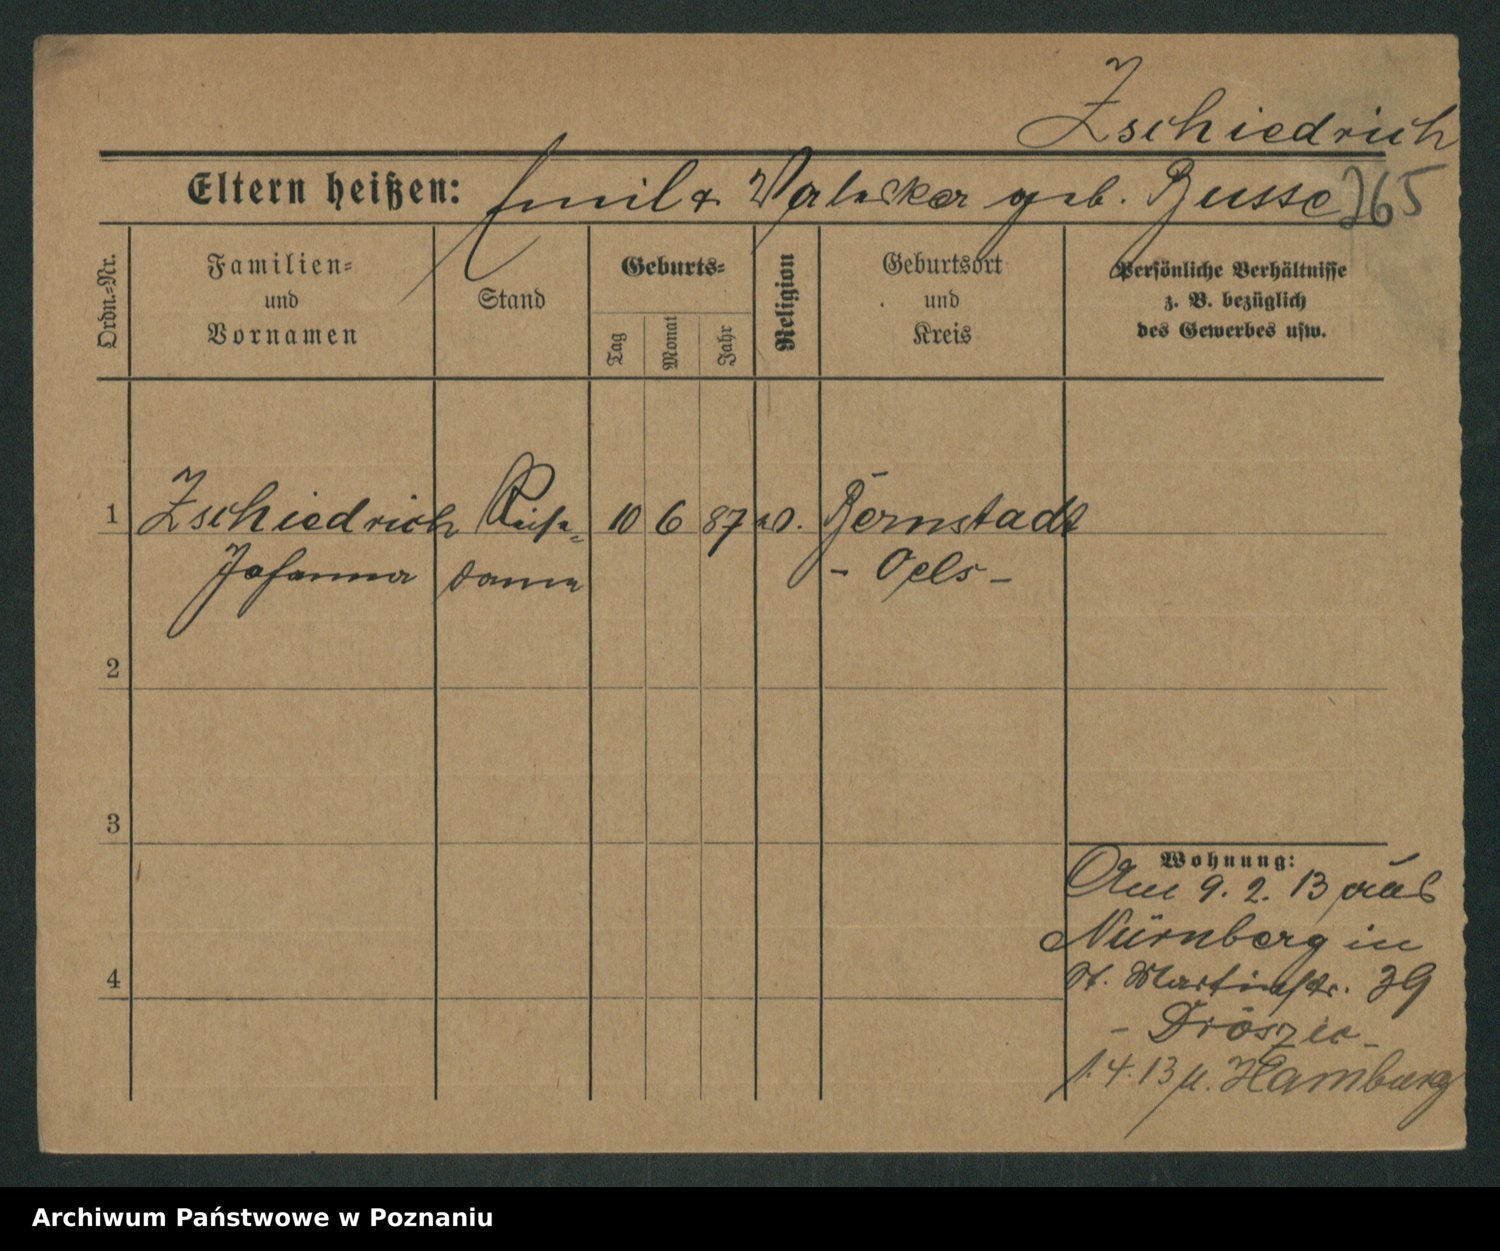 Zschiedrich
Eltern heißen: Emil & Valeska geb. Busse 265
Ordn.-Nr.
Familien- und Vornamen
Stand
Geburts-
Tag
Monat
Jahr
Religion
Geburtsort und Kreis
Persönliche Verhältnisse
z. B. bezüglich
des Gewerbes usw.
1 Zschiedrich 10 6 87 Bernstadt
Johanna dame - Oels -
2
3
4
Wohnung:
Am 9. 2. 13 aus
Nürnberg in
St. Martinstr. 39
1.4.13 n. Hamburg
Archiwum Państwowe w Poznaniu